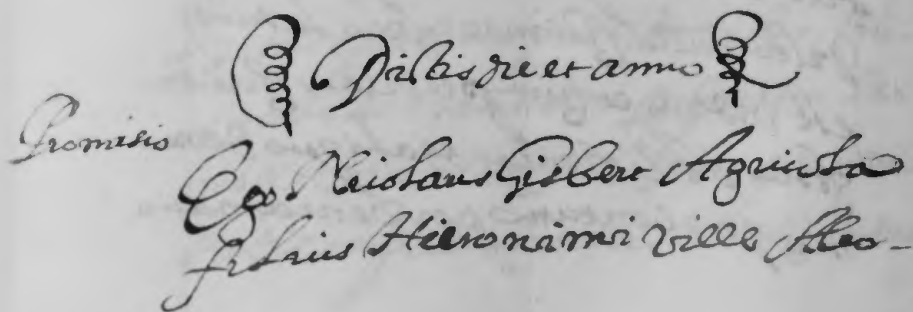 Dictis die et anno
Promisio
Ego Nicolaus Gisbert Agricola
filius Hieronimi ville Alco-